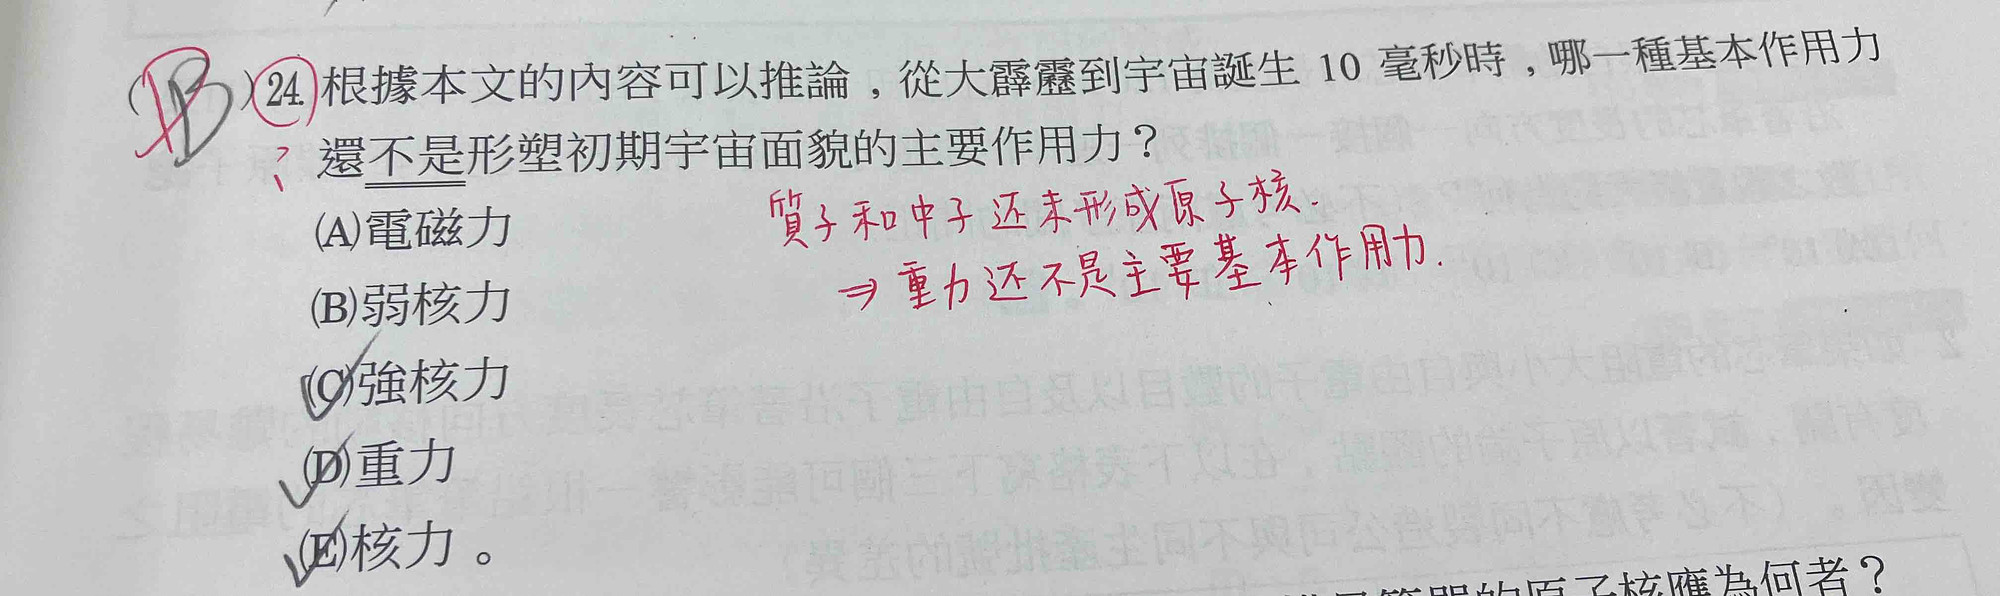 (B)24.根據本文的內容可以推論，從大霹靂到宇宙誕生 10 毫秒時，哪一種基本作用力
還不是形塑初期宇宙面貌的主要作用力？
質子和中子还未形成原子核.
(A)電磁力
⇒重力还不是主要基本作用力.
(B)弱核力
(C)強核力
(D)重力
(E)核力。
的原子核應為何者？